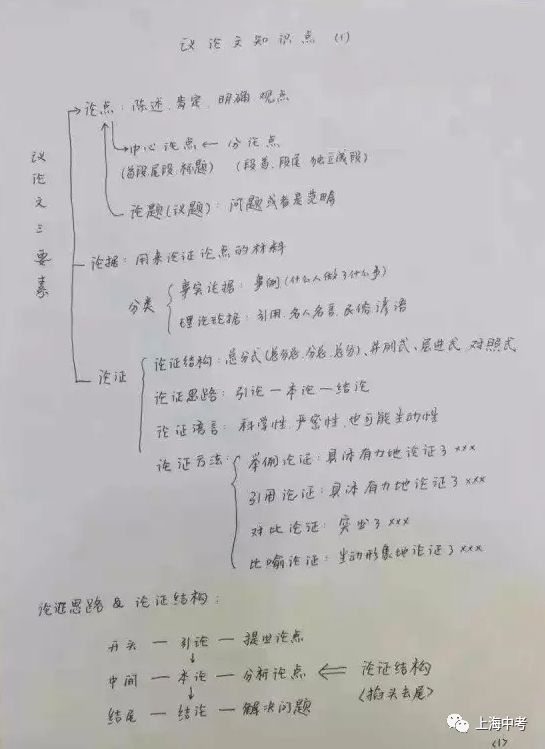 议论文知识点 (1)
议论文三要素
论点：陈述、肯定、明确 观点
中心论点 ← 分论点
(首段、尾段、标题) (段首、段尾 独立成段)
论题(议题)：问题或者是范畴
论据：用来论证论点的材料
分类
事实论据：事例(什么人做了什么事)
理论论据：引用、名人名言、民俗谚语
论证
论证结构：总分式(总分总、分总、总分)、并列式、层进式 对照式
论证思路：引论—本论—结论
论证语言：科学性、严密性、也可能生动性
论证方法：
举例论证：具体有力地论证了×××
引用论证：具体有力地论证了×××
对比论证：突出了×××
比喻论证：生动形象地论证了×××
论证思路 & 论证结构：
开头 — 引论 — 提出论点
↓
中间 — 本论 — 分析论点 ⇐ 论证结构
↓ (掐头去尾)
结尾 — 结论 — 解决问题
上海中考
(1)